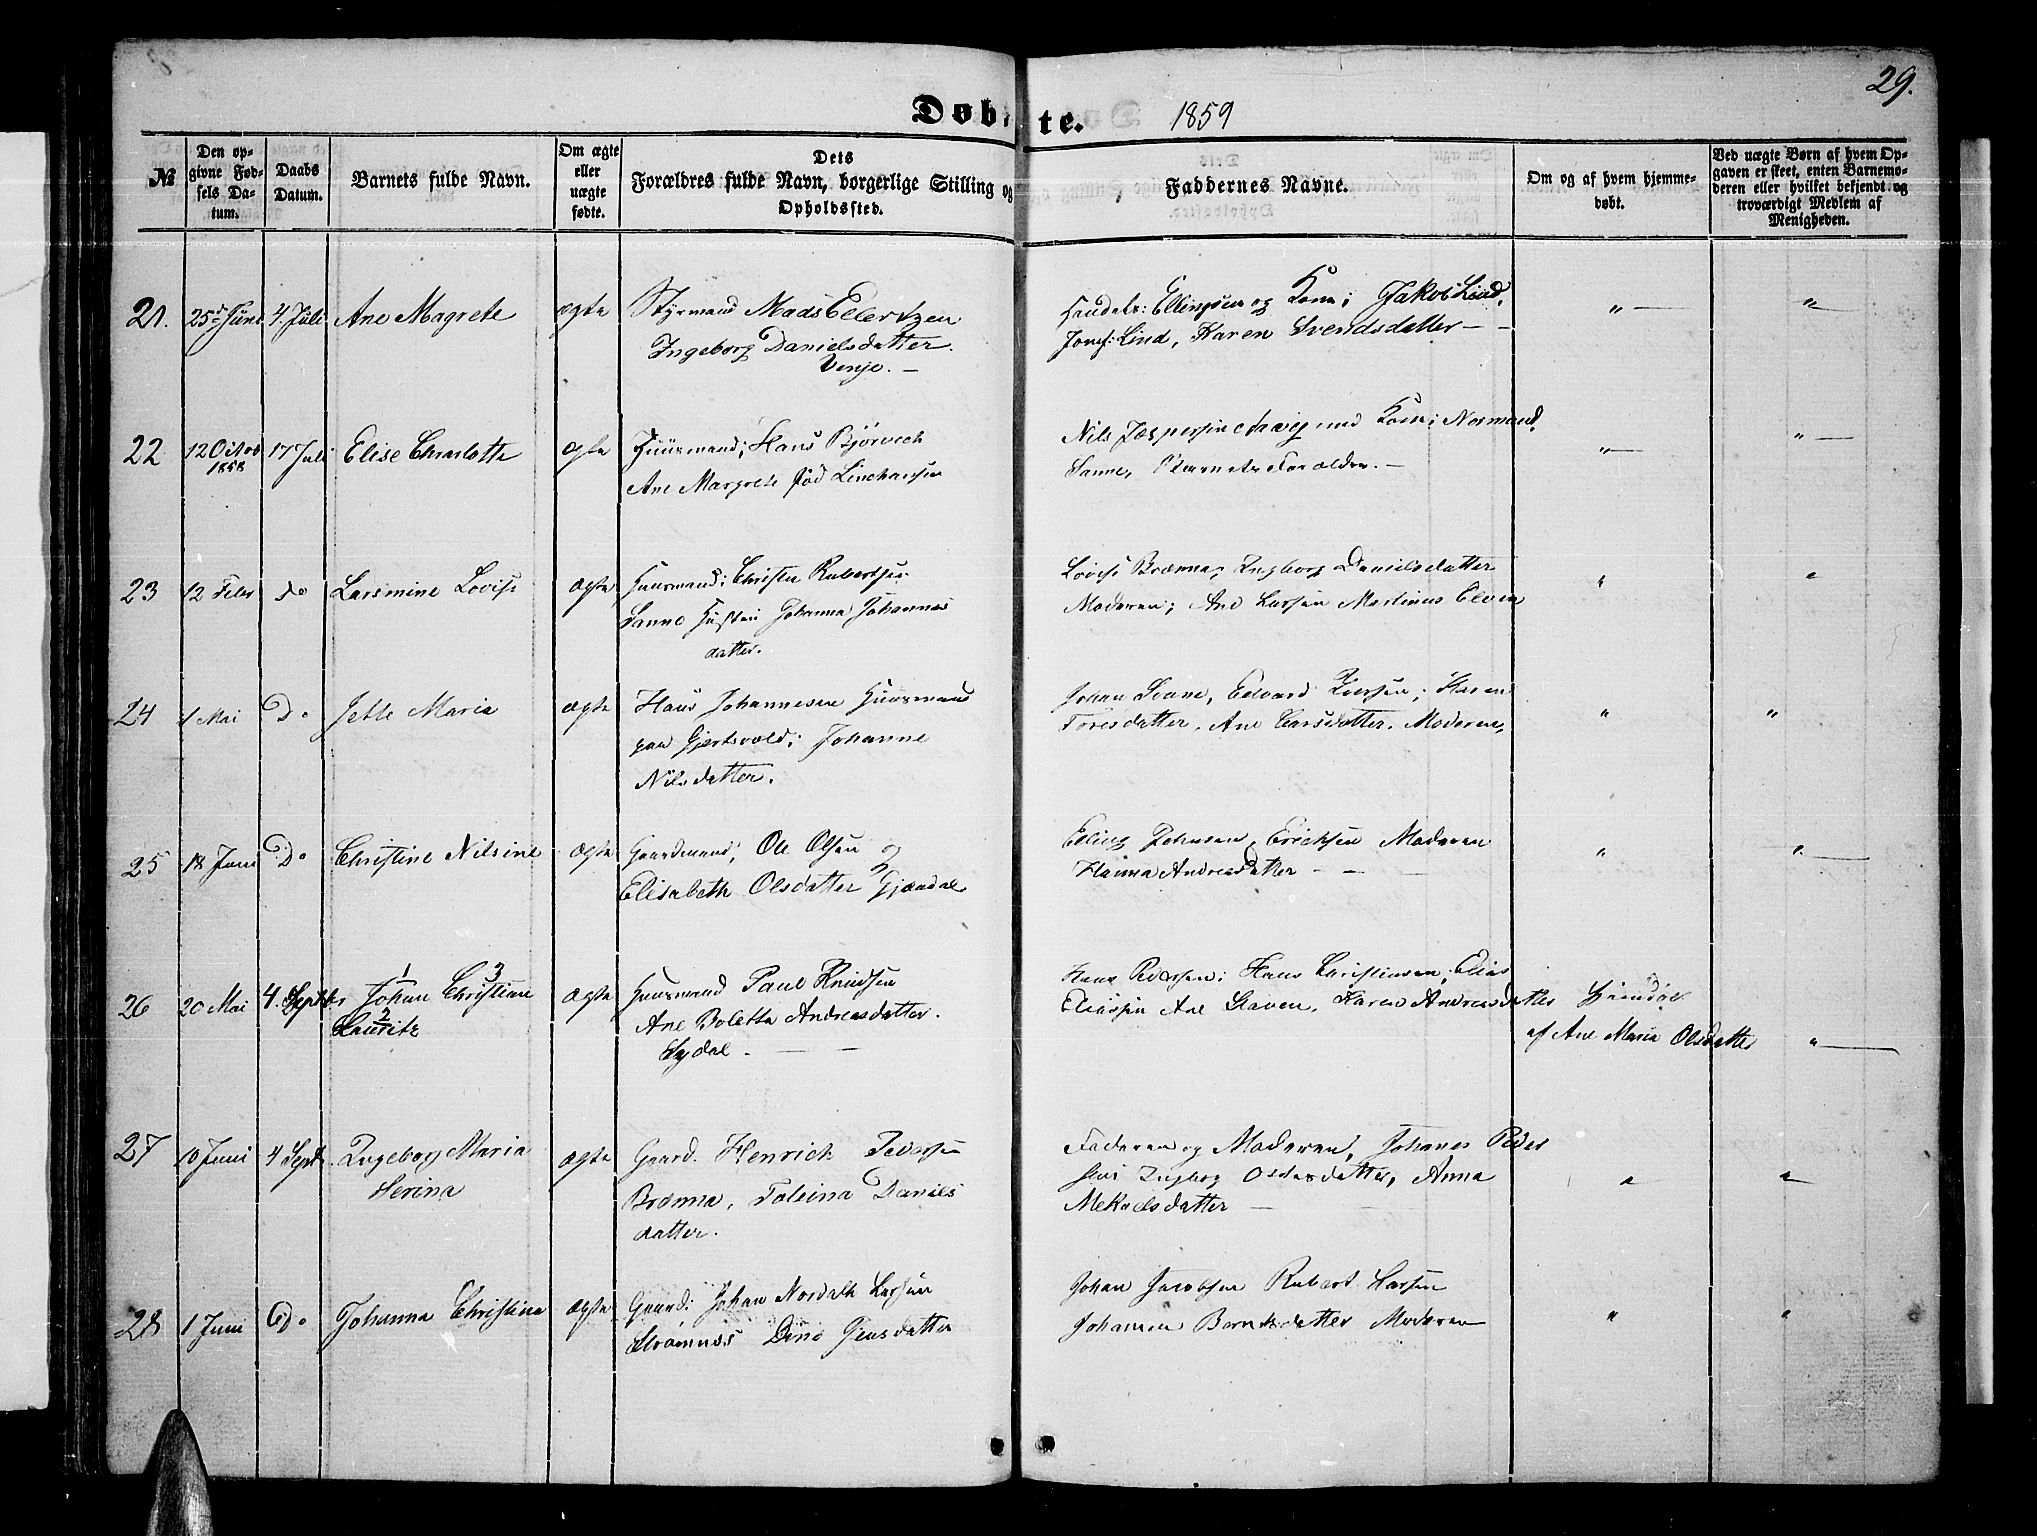 29.
Døbte. 1859
№
Den opgivne Fødsels Datum.
Daabs Datum.
Barnets fulde Navn.
Om ægte eller uægte fødte.
Dets Forældres fulde Navn, borgerlige Stilling og Opholdssted.
Faddernes Navne.
Om og af hvem hjemmedøbt.
Ved uægte Børn af hvem Opgaven er skeet, enten Barnemoderen eller hvilket bekjendt og troværdigt Medlem af Menigheden.
21. 25de Juni 4. Juli Ane Magrete ægte Styrmand Mads Eilertzen
Ingeborg Danielsdatter
Venje. —
Handels: Ellingsen og Kone; Jakob Lind,
Josef: Lind, Karen Svendsdatter — —
" — "
22 12 Octob 1858 17 Juli Elise Charlotta ægte Huusmand; Hans Bjørvech
Ane Margrete fød
Nils Jespersen og Kone; Normand,
Sanne, Barnets Forældre. —
" — " —
23 12 Febr do Larsmine Lovise ægte Huusmand; Christen Rubertsen
Sanne Johanna Johannes
datter.
Lovise Brænna, Ingborg Danielsdatter
Moderen; Ane Larsen Martinus
" "
24 1 Mai Do Jette Maria ægte Hans Johannesen Huusmand
paa Gjertsvold; Johanne
Nilsdatter.
Johan Svane, Edvard Iversen; Karen
Toresdatter, Ane Larsdatter, Moderen,
" "
25 18 Juni Do Christine Nilsine ægte Gaardmand, Ole Olsen og
Elisabeth Olsdatter Gjændal
Elling Johnsen, Erichsen Moderen
Hanna Andreasdatter — — —
" " —
26 20 Mai 4. Septbr 1 3
Johan Christian
2
Lauritz
ægte Huusmand Paul Knudsen
Ane Boletta Andreasdatter.
Sydal. — —
Hans Pedersen; Hans Christiansen, Elias
Eliassen Ane Karen Andreasdatter
af Ane Maria Olsdatter " —
27 10 Juni 4 Septr Ingeborg Maria
Serina
ægte Gaard. Henrich Pedersen
Brønna, Daniels
datter.
Faderen og Moderen, Johanes Peder
sen Ingborg datter, Anna
Mekaelsdatter — —
" "
28 1 Juni Do Johanna Christina ægte Gaard; Johan Nordahl Larsen
Strømnes Dina Jensdatter
Johan Jacobsen Rubert Larsen
Johanna Berntsdatter Moderen
" "